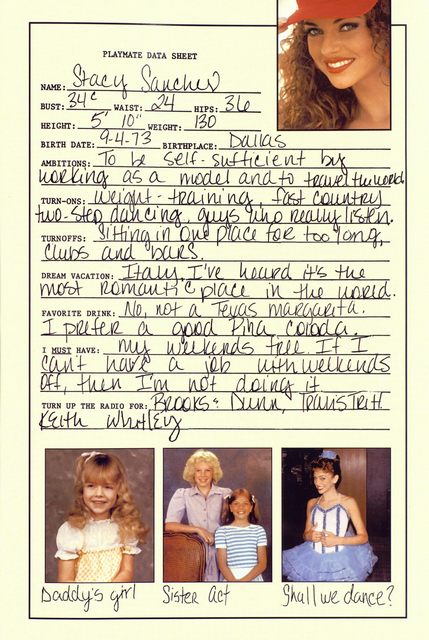 PLAYMATE DATA SHEET
NAME: Stacy Sanchez
BUST: 34c WAIST: 24 HIPS: 36
HEIGHT: 5' 10" WEIGHT: 130
BIRTH DATE: 9-4-73 BIRTHPLACE: Dallas
AMBITIONS: To be self-sufficient by
working as a model and to travel the world.
TURN-ONS: Weight-training, fast country
two-step dancing, guys who really listen.
TURNOFFS: Sitting in one place for too long,
clubs and bars.
DREAM VACATION: Italy, I've heard it's the
most romantic place in the world.
FAVORITE DRINK: No, not a Texas margarita.
I prefer a good Piña colada.
I MUST HAVE: my weekends free. If I
can't have a job with weekends
off, then I'm not doing it
TURN UP THE RADIO FOR: Brooks & Dunn, Travis Tritt
Keith Whitley
Daddy's girl Sister Act Shall we dance?